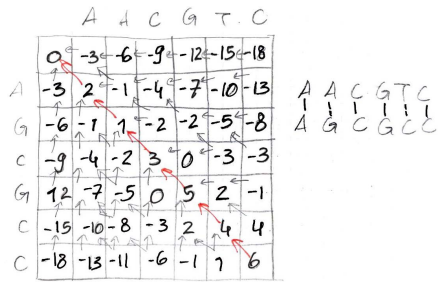 A A C G T C
0 -3 -6 -9 -12 -15 -18
A -3 2 -1 -4 -7 -10 -13
G -6 -1 1 -2 -2 -5 -8
C -9 -4 -2 3 0 -3 -3
G 12 -7 -5 0 5 2 -1
C -15 -10 -8 -3 2 4 4
C -18 -13 -11 -6 -1 1 6
A A C G T C
A G C G C C